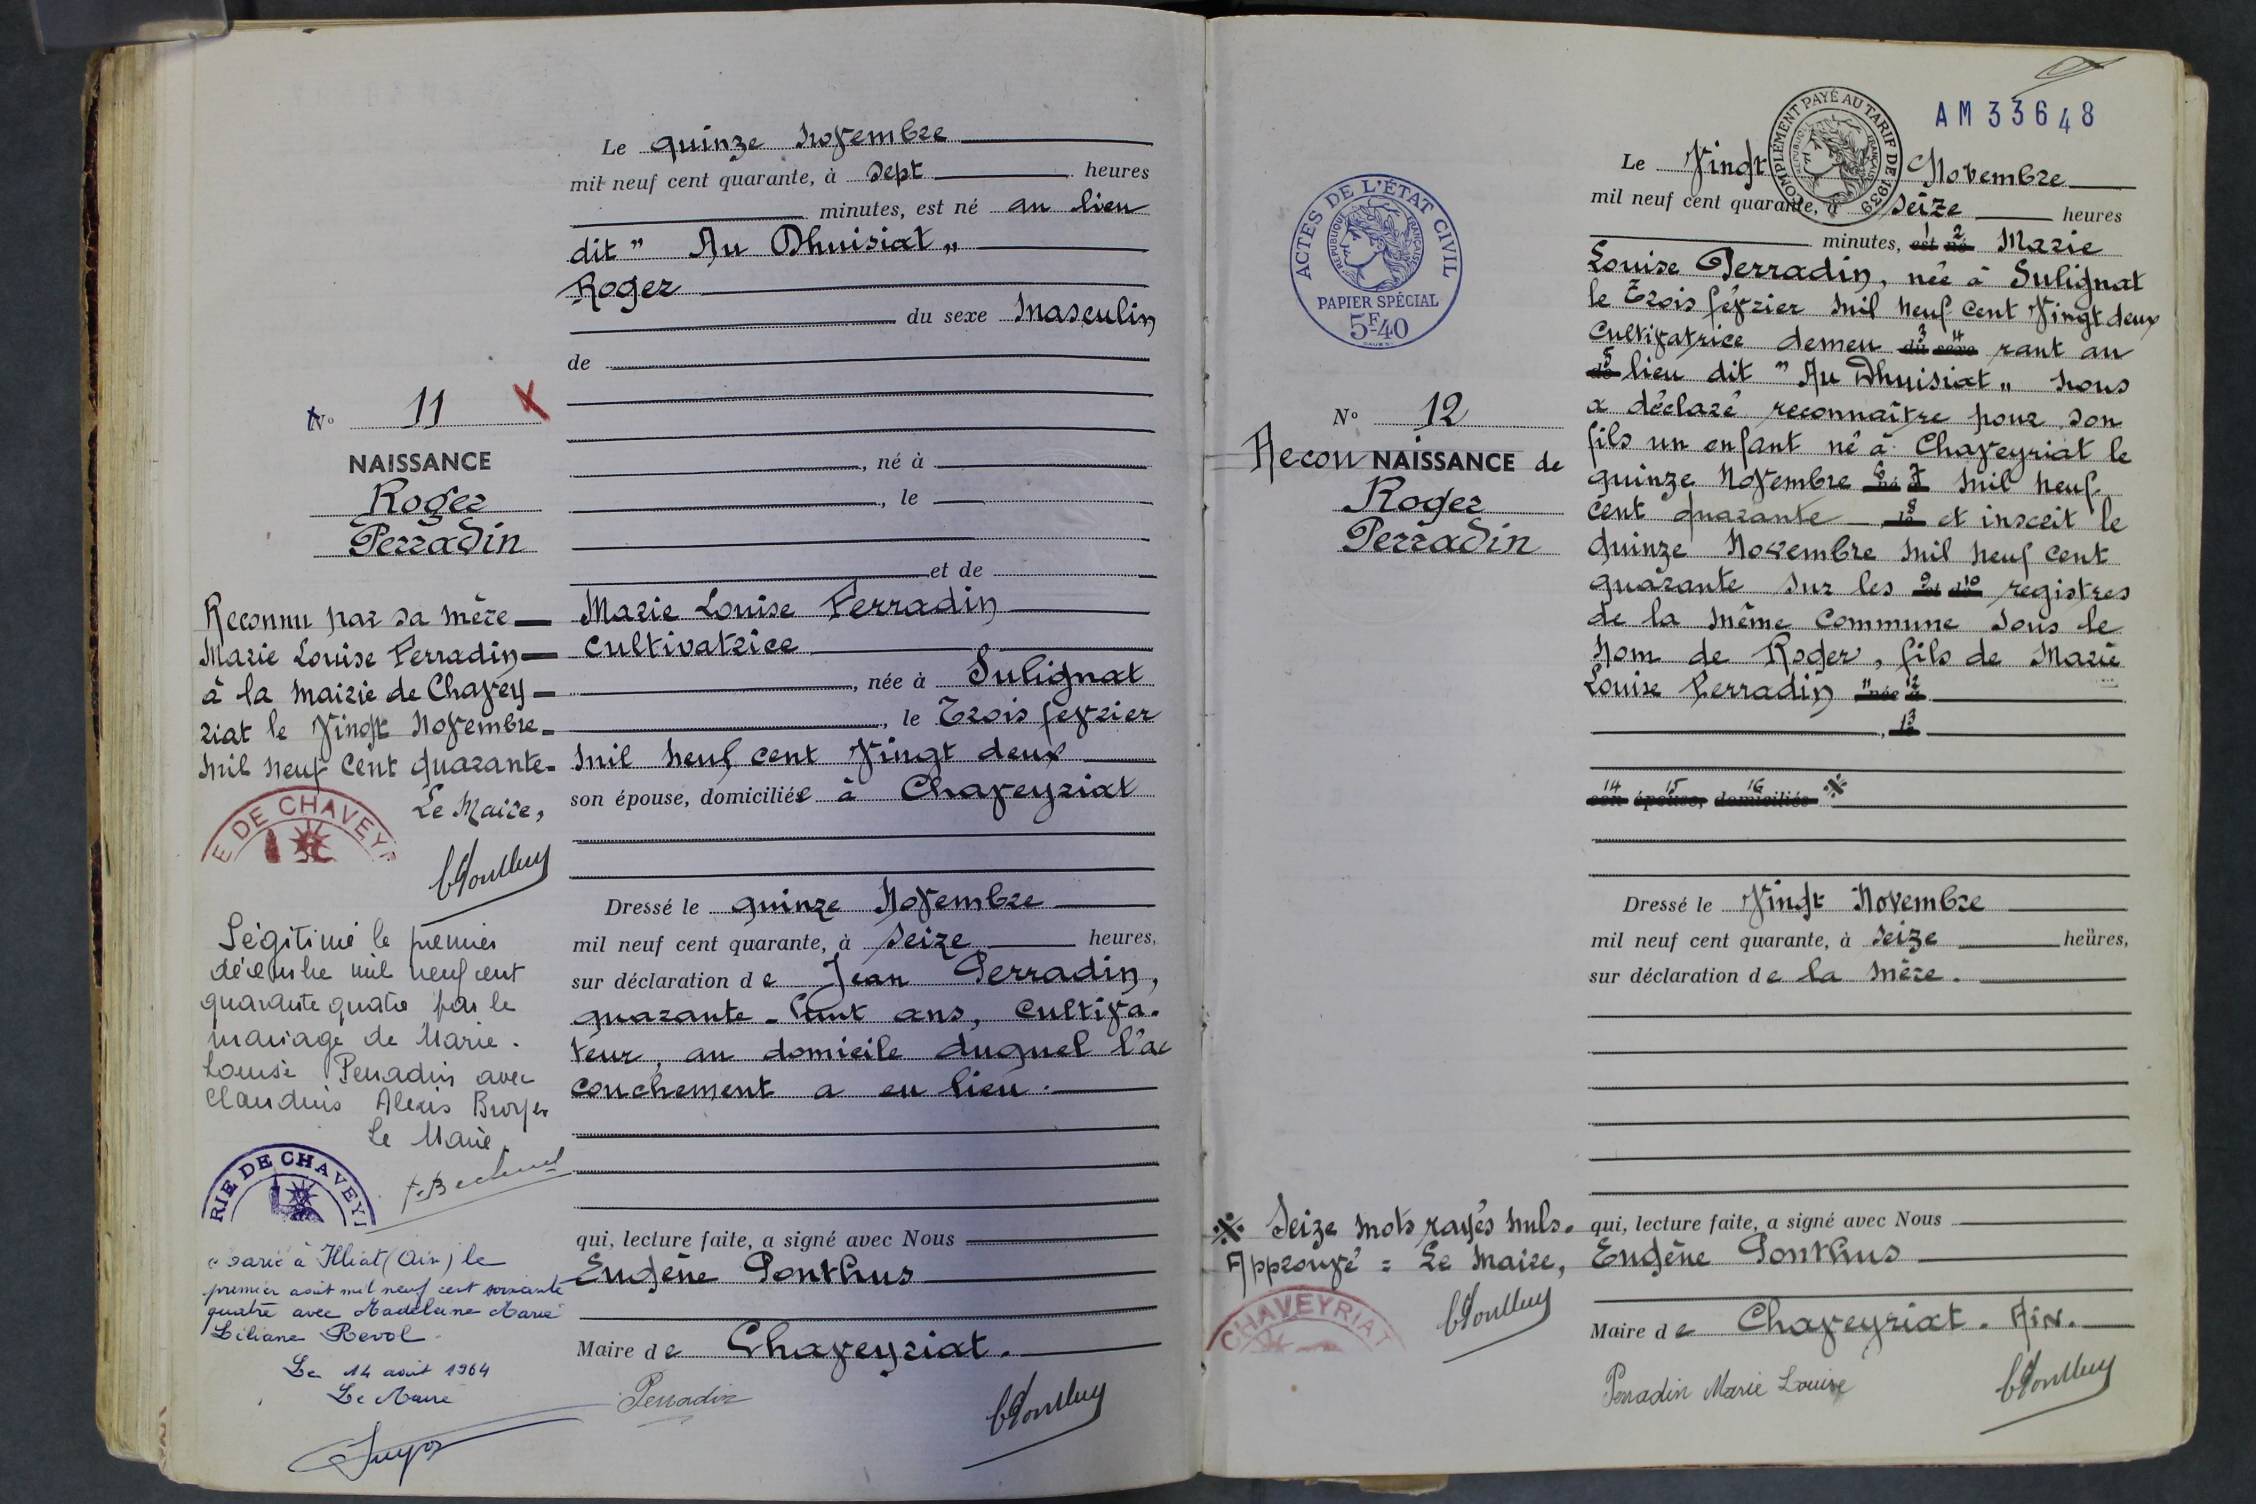 Le quinze novembre
mil neuf cent quarante, à sept heures
minutes, est né au lieu
dit " Au Dhuisiat "
Roger
du sexe Masculin
de
, né à
, le
et de
Marie Louise Perradin
Cultivatrice
, née à Sulignat
, le Trois fevrier
Mil neuf cent Vingt deux
son épouse, domiciliée à Chaveyriat
Dressé le quinze Novembre
mil neuf cent quarante, à Seize heures,
sur déclaration de Jean Perradin,
quarante-huit ans, cultiva-
teur, au domicile duquel l'ac
couchement a eu lieu.
qui, lecture faite, a signé avec Nous
Eugène Ponthus
Maire de Chaveyriat.
Perradin
No 11
NAISSANCE
Roger
Perradin
Reconnu par sa mère
Marie Louise Perradin
à la Mairie de Chavey-
riat le Vingt Novembre
Mil neuf cent quarante
Le Maire,
E DE CHAVEY
Légitimé le premier
décembre mil neuf cent
quarante quatre par le
mariage de Marie-
Louise Perradin avec
Claudius Alexis Broyer
Le Maire,
RIE DE CHAVEY
Marié à Illiat (Ain) le
premier août mil neuf cent soixante
quatre avec Madeleine Marie
Liliane Revol.
Le 14 août 1964
Le Maire
AM 33648
COMPLÉMENT PAYÉ AU TARIF DE 1939
RÉPUBLIQUE FRANÇAISE
ACTES DE L'ÉTAT CIVIL
RÉPUBLIQUE FRANÇAISE
PAPIER SPÉCIAL
5F40
No 12
ReconNAISSANCE de
Roger
Perradin
Le Vingt Novembre
mil neuf cent quarante, à Seize heures
minutes, est 1 né 2 Marie
Louise Perradin, née à Sulignat
le Trois février Mil Neuf Cent Vingt deux
Cultivatrice demeu du 3 sexe 4 rant au
de 5 lieu dit " Au Dhuisiat " nous
a déclaré reconnaître pour son
fils un enfant né à Chaveyriat le
quinze Novembre né 6 à 7 Mil Neuf
cent quarante le 8 et inscrit le
quinze Novembre Mil Neuf cent
quarante sur les et 9 de 10 registres
de la même Commune sous le
Nom de Roger, fils de Marie
Louise Perradin née 11 à 12
, le 13
son 14 épouse, 15 domiciliés 16 ※
Dressé le Vingt Novembre
mil neuf cent quarante, à Seize heures,
sur déclaration de la Mère.
※ Seize mots rayés nuls.
Approuvé : Le Maire,
CHAVEYRIAT
qui, lecture faite, a signé avec Nous
Eugène Ponthus
Maire de Chaveyriat. Ain.
Perradin Marie Louise